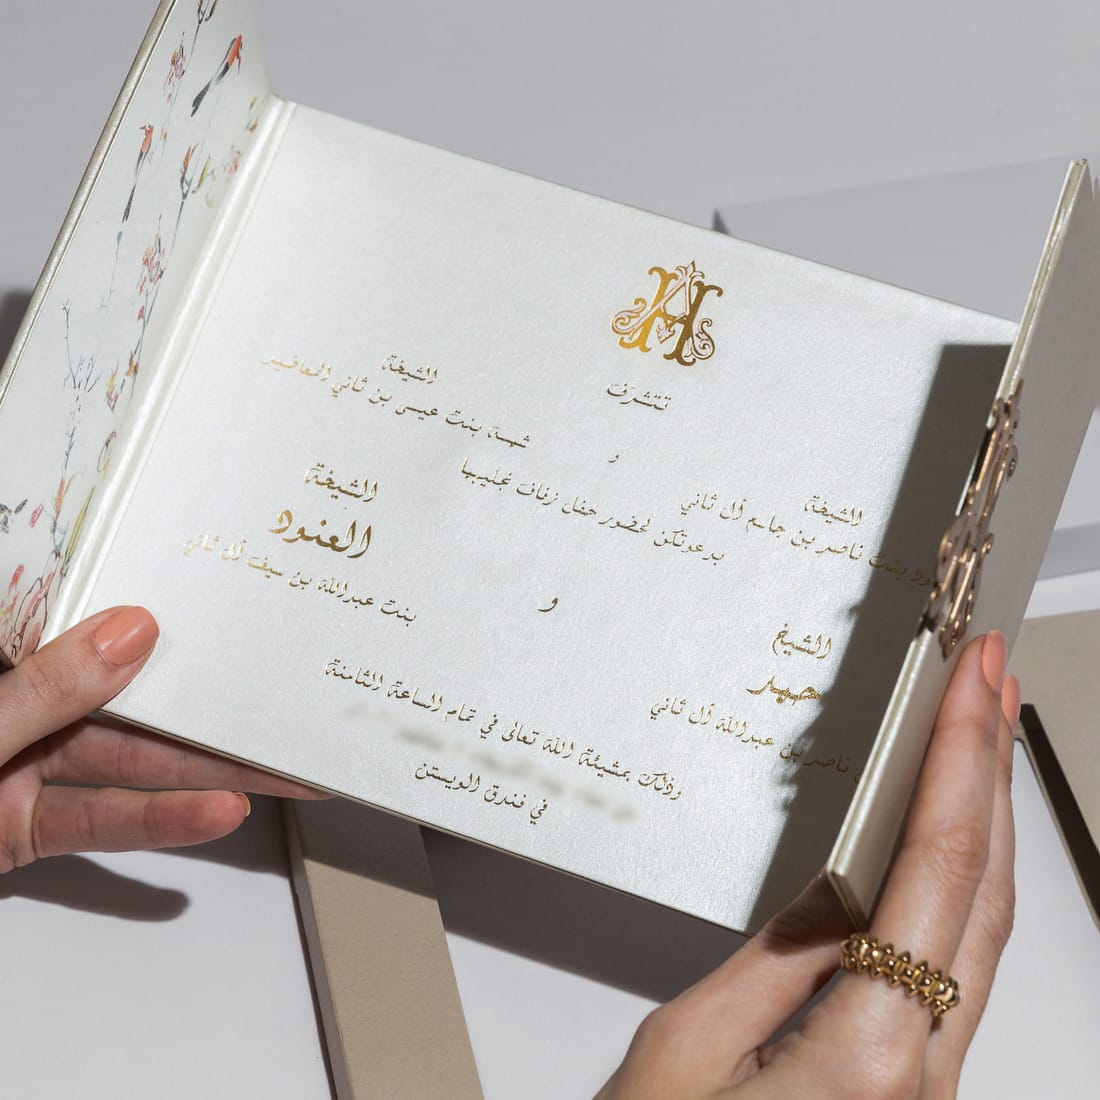 AH
تتشرف
الشيخة
ود بنت ناصر بن جاسم آل ثاني
و
الشيخة
شمة بنت عيسى بن ثاني المعاضيد
بدعوتكن لحضور حفل زفاف نجليهما
الشيخ
حمد
ناصر بن عبدالله آل ثاني
و
الشيخة
العنود
بنت عبدالله بن سيف آل ثاني
وذلك بمشيئة الله تعالى في تمام الساعة الثامنة
في فندق الويستن